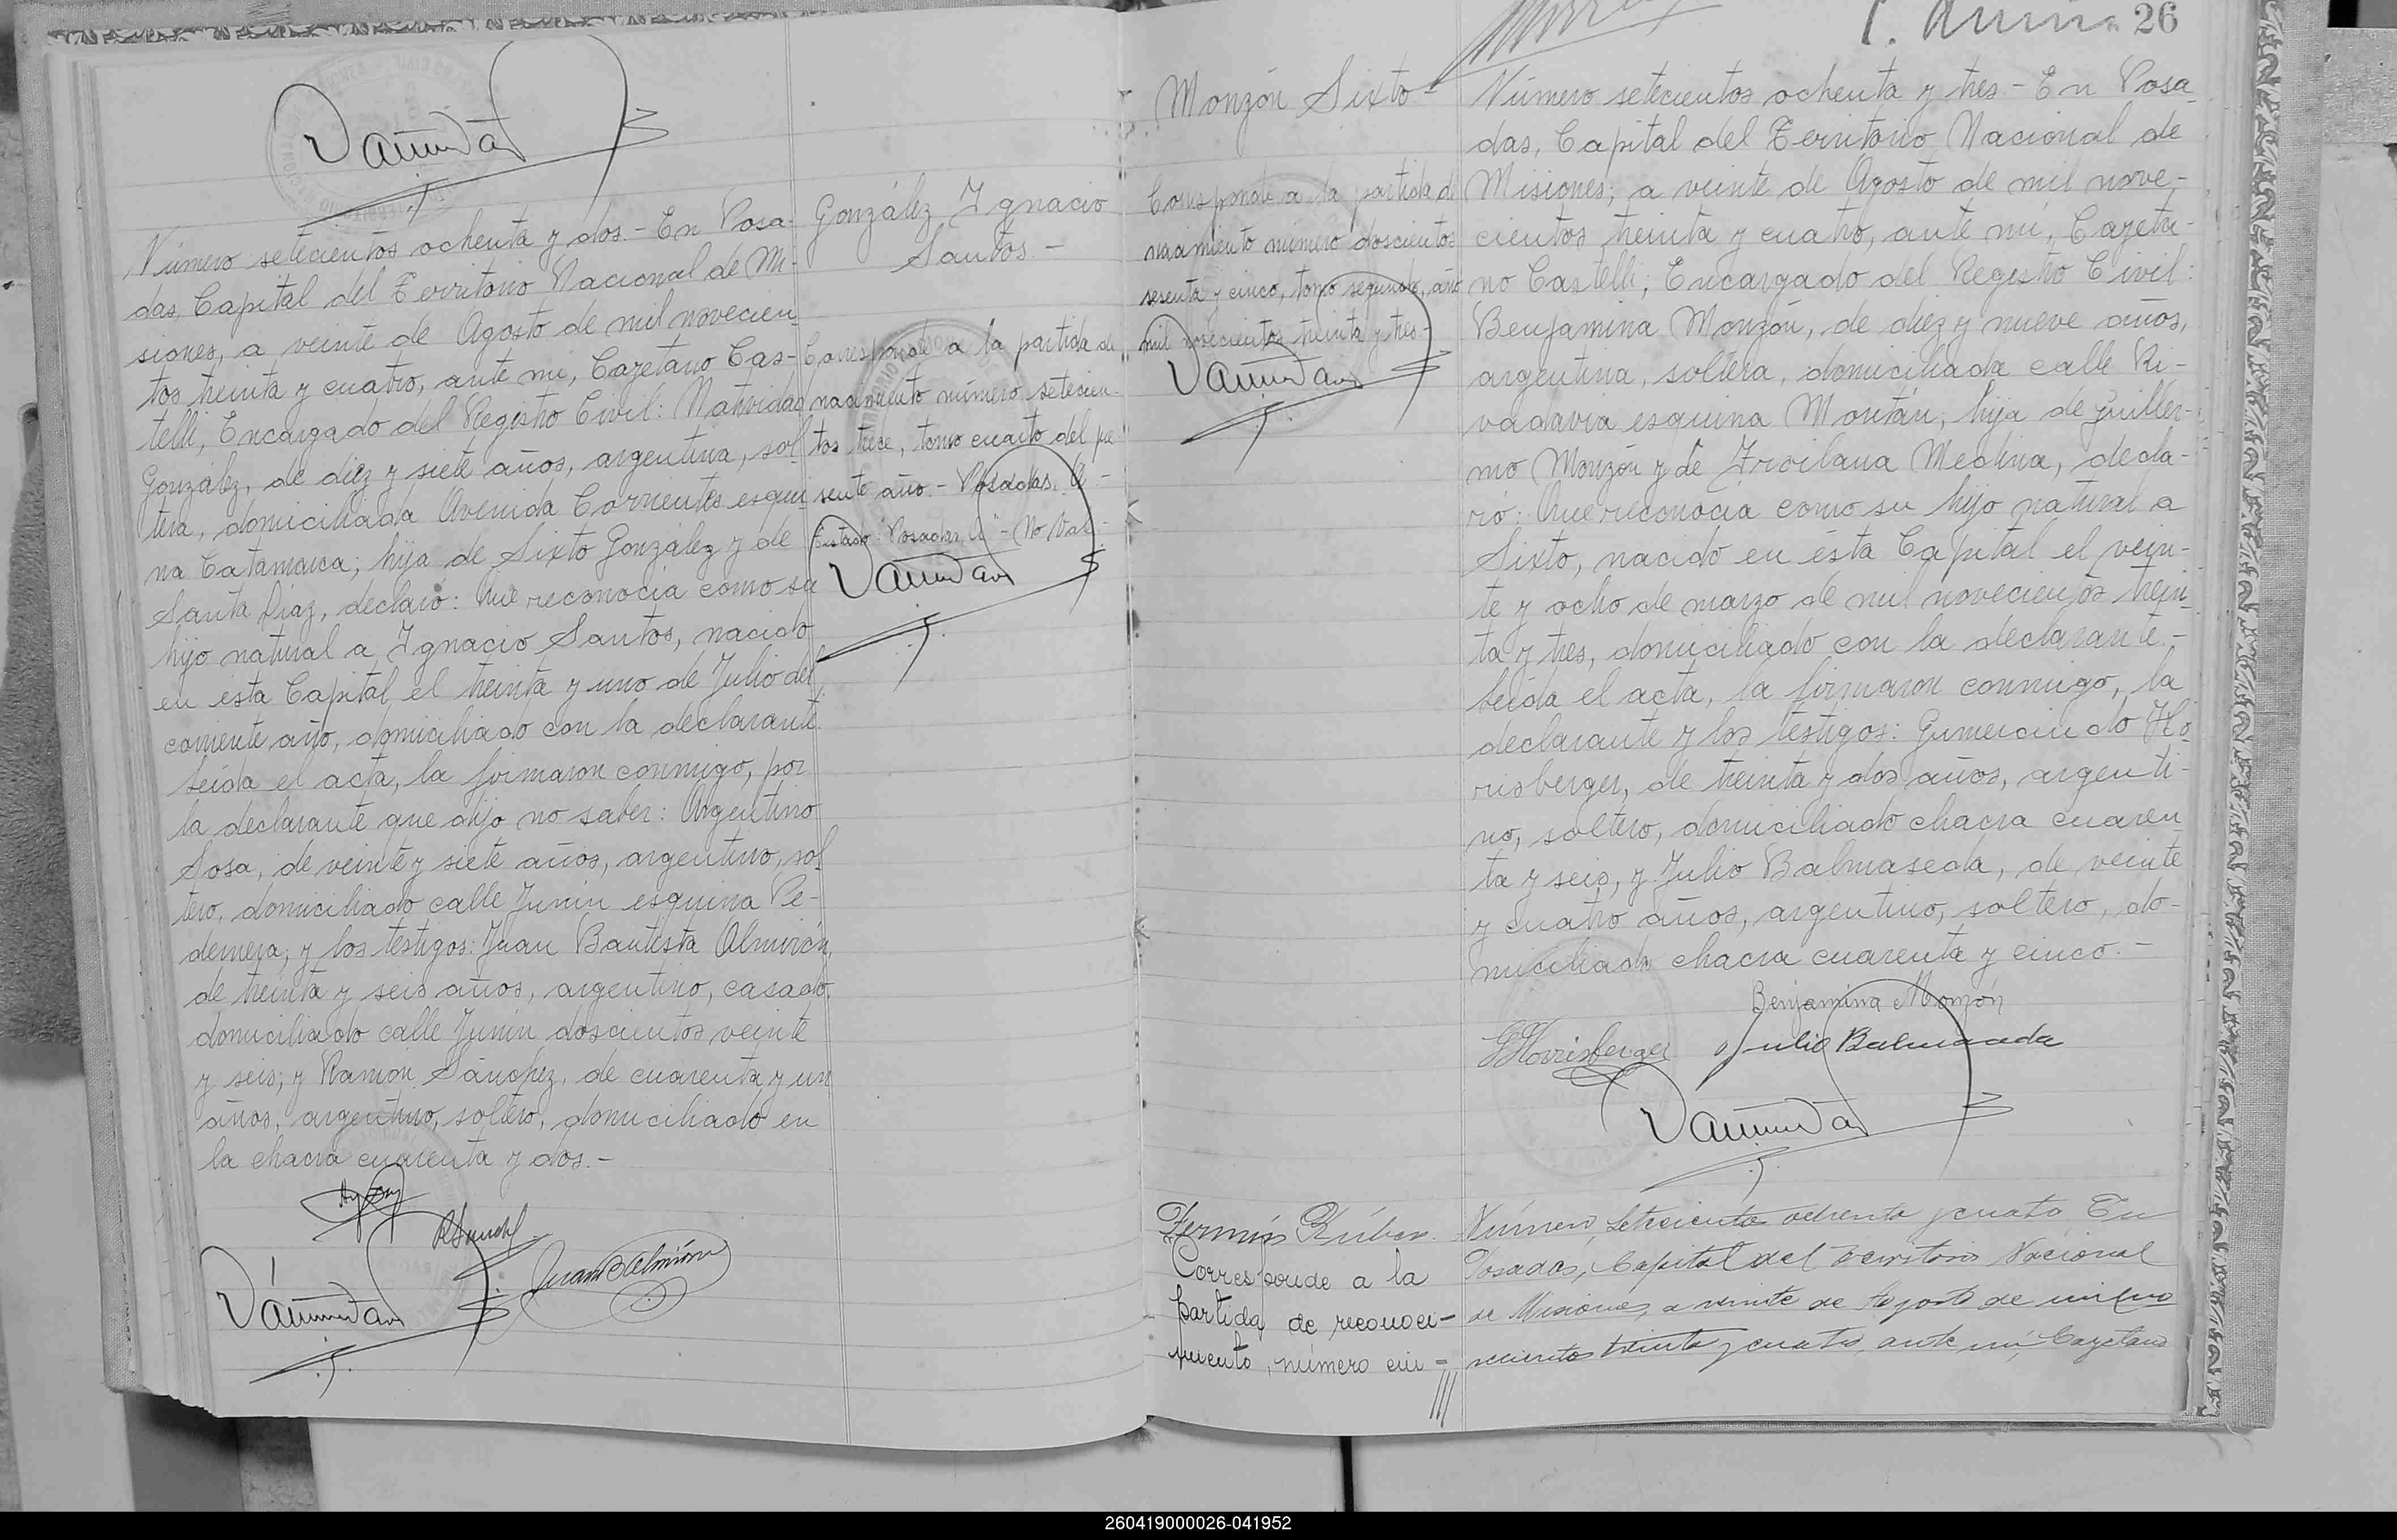 Número setecientos ochenta y dos.- En Posa-
das, Capital del Territorio Nacional de Mi-
siones, a veinte de Agosto de mil novecien-
tos treinta y cuatro, ante mi, Cayetano Cas-
telli, Encargado del Registro Civil: Natividad
González, de diez y siete años, argentina, sol
tera, domiciliada Avenida Corrientes esqui
na Catamarca; hija de Sixto González y de
Santa Diaz, declaró: Que reconocía como su
hijo natural a Ignacio Santos, nacido
en ésta Capital, el treinta y uno de Julio del
corriente año, domiciliado con la declarante.
Leída el acta, la firmaron conmigo, por
la declarante que dijo no saber: Argentino
Sosa, de veinte y siete años, argentino, sol
tero, domiciliado calle Junin esquina Pe-
dernera; y los testigos: Juan Bautista Almirón,
de treinta y seis años, argentino, casado,
domiciliado calle Junin doscientos veinte
y seis; y Ramón Sánchez, de cuarenta y un
años, argentino, soltero, domiciliado en
la chacra cuarenta y dos.-
Juan B Almirón
González Ignacio
Santos.-
Corresponde a la partida de
nacimiento número setecien-
tos trece, tomo cuarto del pre-
sente año.- Posadas, A -
Testado: "Posadas, A" - No Vale.-
26
Monzón Sixto-
Corresponde a la partida de
nacimiento número doscientos
sesenta y cinco, tomo segundo, año
mil novecientos treinta y tres-
Número setecientos ochenta y tres - En Posa
das, Capital del Territorio Nacional de
Misiones, a veinte de Agosto de mil nove-
cientos treinta y cuatro, ante mi, Cayeta-
no Castelli, Encargado del Registro Civil:
Benjamina Monzón, de diez y nueve años,
argentina, soltera, domiciliada calle Ri-
vadavia esquina Moritán; hija de Guiller-
mo Monzón y de Froilana Medina, decla-
ró: Que reconocía como su hijo natural a
Sixto, nacido en ésta Capital el vein-
te y ocho de marzo de mil novecientos trein
ta y tres, domiciliado con la declarante.-
Leída el acta, la firmaron conmigo, la
declarante y los testigos: Gumercindo Ho
risberger, de treinta y dos años, argenti-
no, soltero, domiciliado chacra cuaren
ta y seis, y Julio Balmaseda, de veinte
y cuatro años, argentino, soltero, do-
miciliado chacra cuarenta y cinco.-
Benjamina Monzón
GHorrisberger Julio Balmaceda
Fermín Rúben.
Corresponde a la
partida de reconoci-
miento, número cin-
Número, setecientos ochenta y cuatro En
Posadas, Capital del Territorio Nacional
de Misiones, a veinte de Agosto de mil no
vecientos treinta y cuatro, ante mí, Cayetano
260419000026-041952